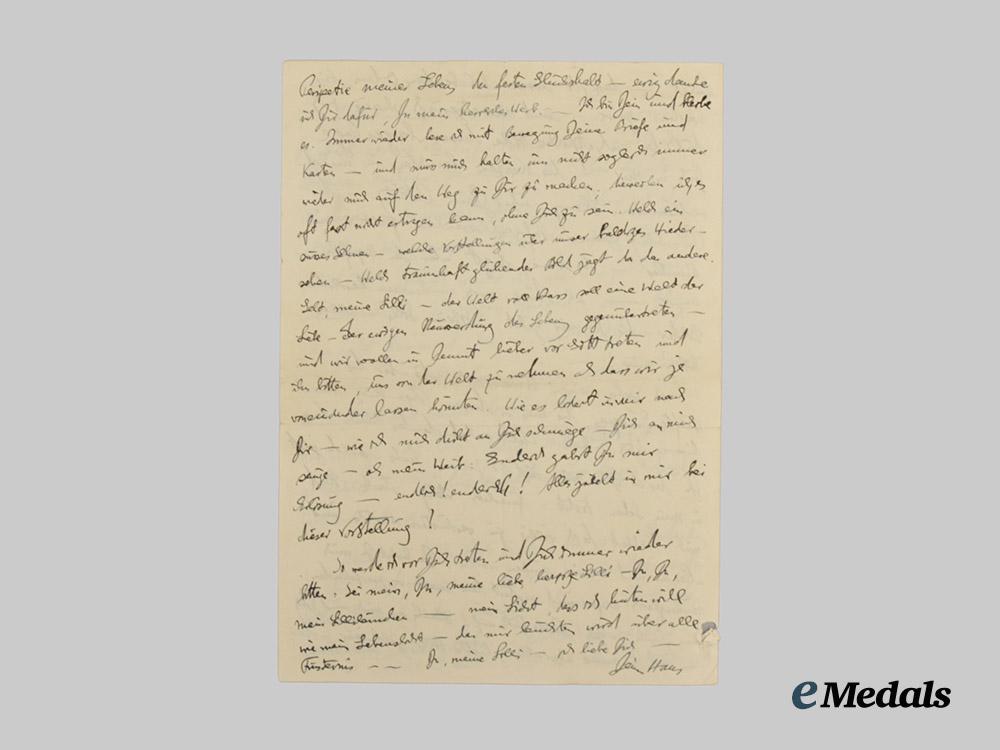 meiner Lebens den festen — ewig danke
ich Dir dafür, Du mein herrliches Weib. — Ich bin Dein und bleibe
es. Immer wieder lese ich mit Bewegung Deine Briefe und
Karten — und muss mich halten, um nicht sogleich immer
wieder mich auf den Weg zu Dir zu machen, ich es
oft fast nicht ertragen kann, ohne Dich zu sein. Welch ein
süsses Sehnen — welche Vorstellungen über unser baldiges Wieder-
sehen — Welch traumhaft glühender Bild jagt da das andere.
meine Lilli — der Welt voll Hass soll eine Welt der
Liebe — der ewigen Neuwerdung des Lebens gegenübertreten —
und wir wollen in lieber vor Gott treten und
ihn bitten, uns von der Welt zu nehmen als dass wir je
voneinander lassen könnten. Wie es lodert in mir nach
Dir — wie ich mich dicht an Dich schmiege — Dich an mich
— als mein Weib. Endlich gabst Du mir
Erlösung — endlich! endlich! Alles in mir bei
dieser Vorstellung!
So werde ich vor Dich treten und Dich immer wieder
bitten. Sei mein, Du, meine liebe Lilli — Du, Du,
mein — mein Licht, das ich hüten will
wie mein Lebenslicht — das mir leuchten wird über alle
Finsternis — — Du, meine Lilli — ich liebe Dich —
Dein Hans
eMedals